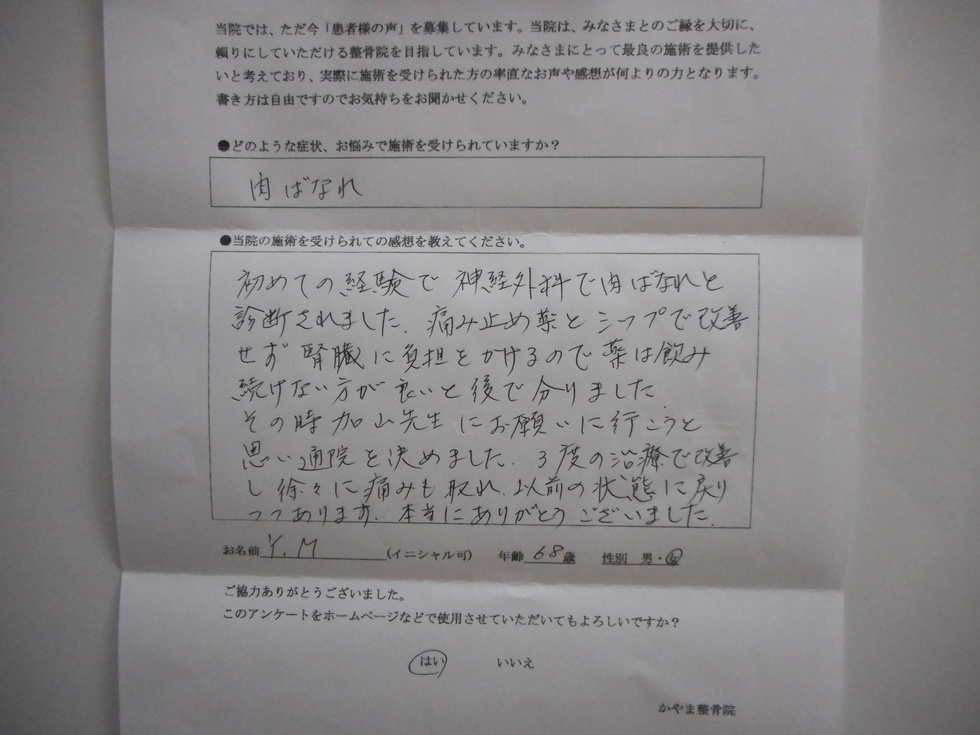 当院では、ただ今「患者様の声」を募集しています。当院は、みなさまとのご縁を大切に、
頼りにしていただける整骨院を目指しています。みなさまにとって最良の施術を提供した
いと考えており、実際に施術を受けられた方の率直なお声や感想が何よりの力となります。
書き方は自由ですのでお気持ちをお聞かせください。
●どのような症状、お悩みで施術を受けられていますか？
肉ばなれ
●当院の施術を受けられての感想を教えてください。
初めての経験で 神経外科で肉ばなれと
診断されました。痛み止め薬とシップで改善
せず 腎臓に負担をかけるので薬は飲み
続けない方が良いと後で分りました
その時加山先生にお願いに行こうと
思い通院を決めました。3度の治療で改善
し徐々に痛みも取れ、以前の状態に戻り
つつあります。本当にありがとうございました。
お名前 Y.M (イニシャル可) 年齢 68 歳 性別 男・女
ご協力ありがとうございました。
このアンケートをホームページなどで使用させていただいてもよろしいですか？
はい いいえ
かやま整骨院